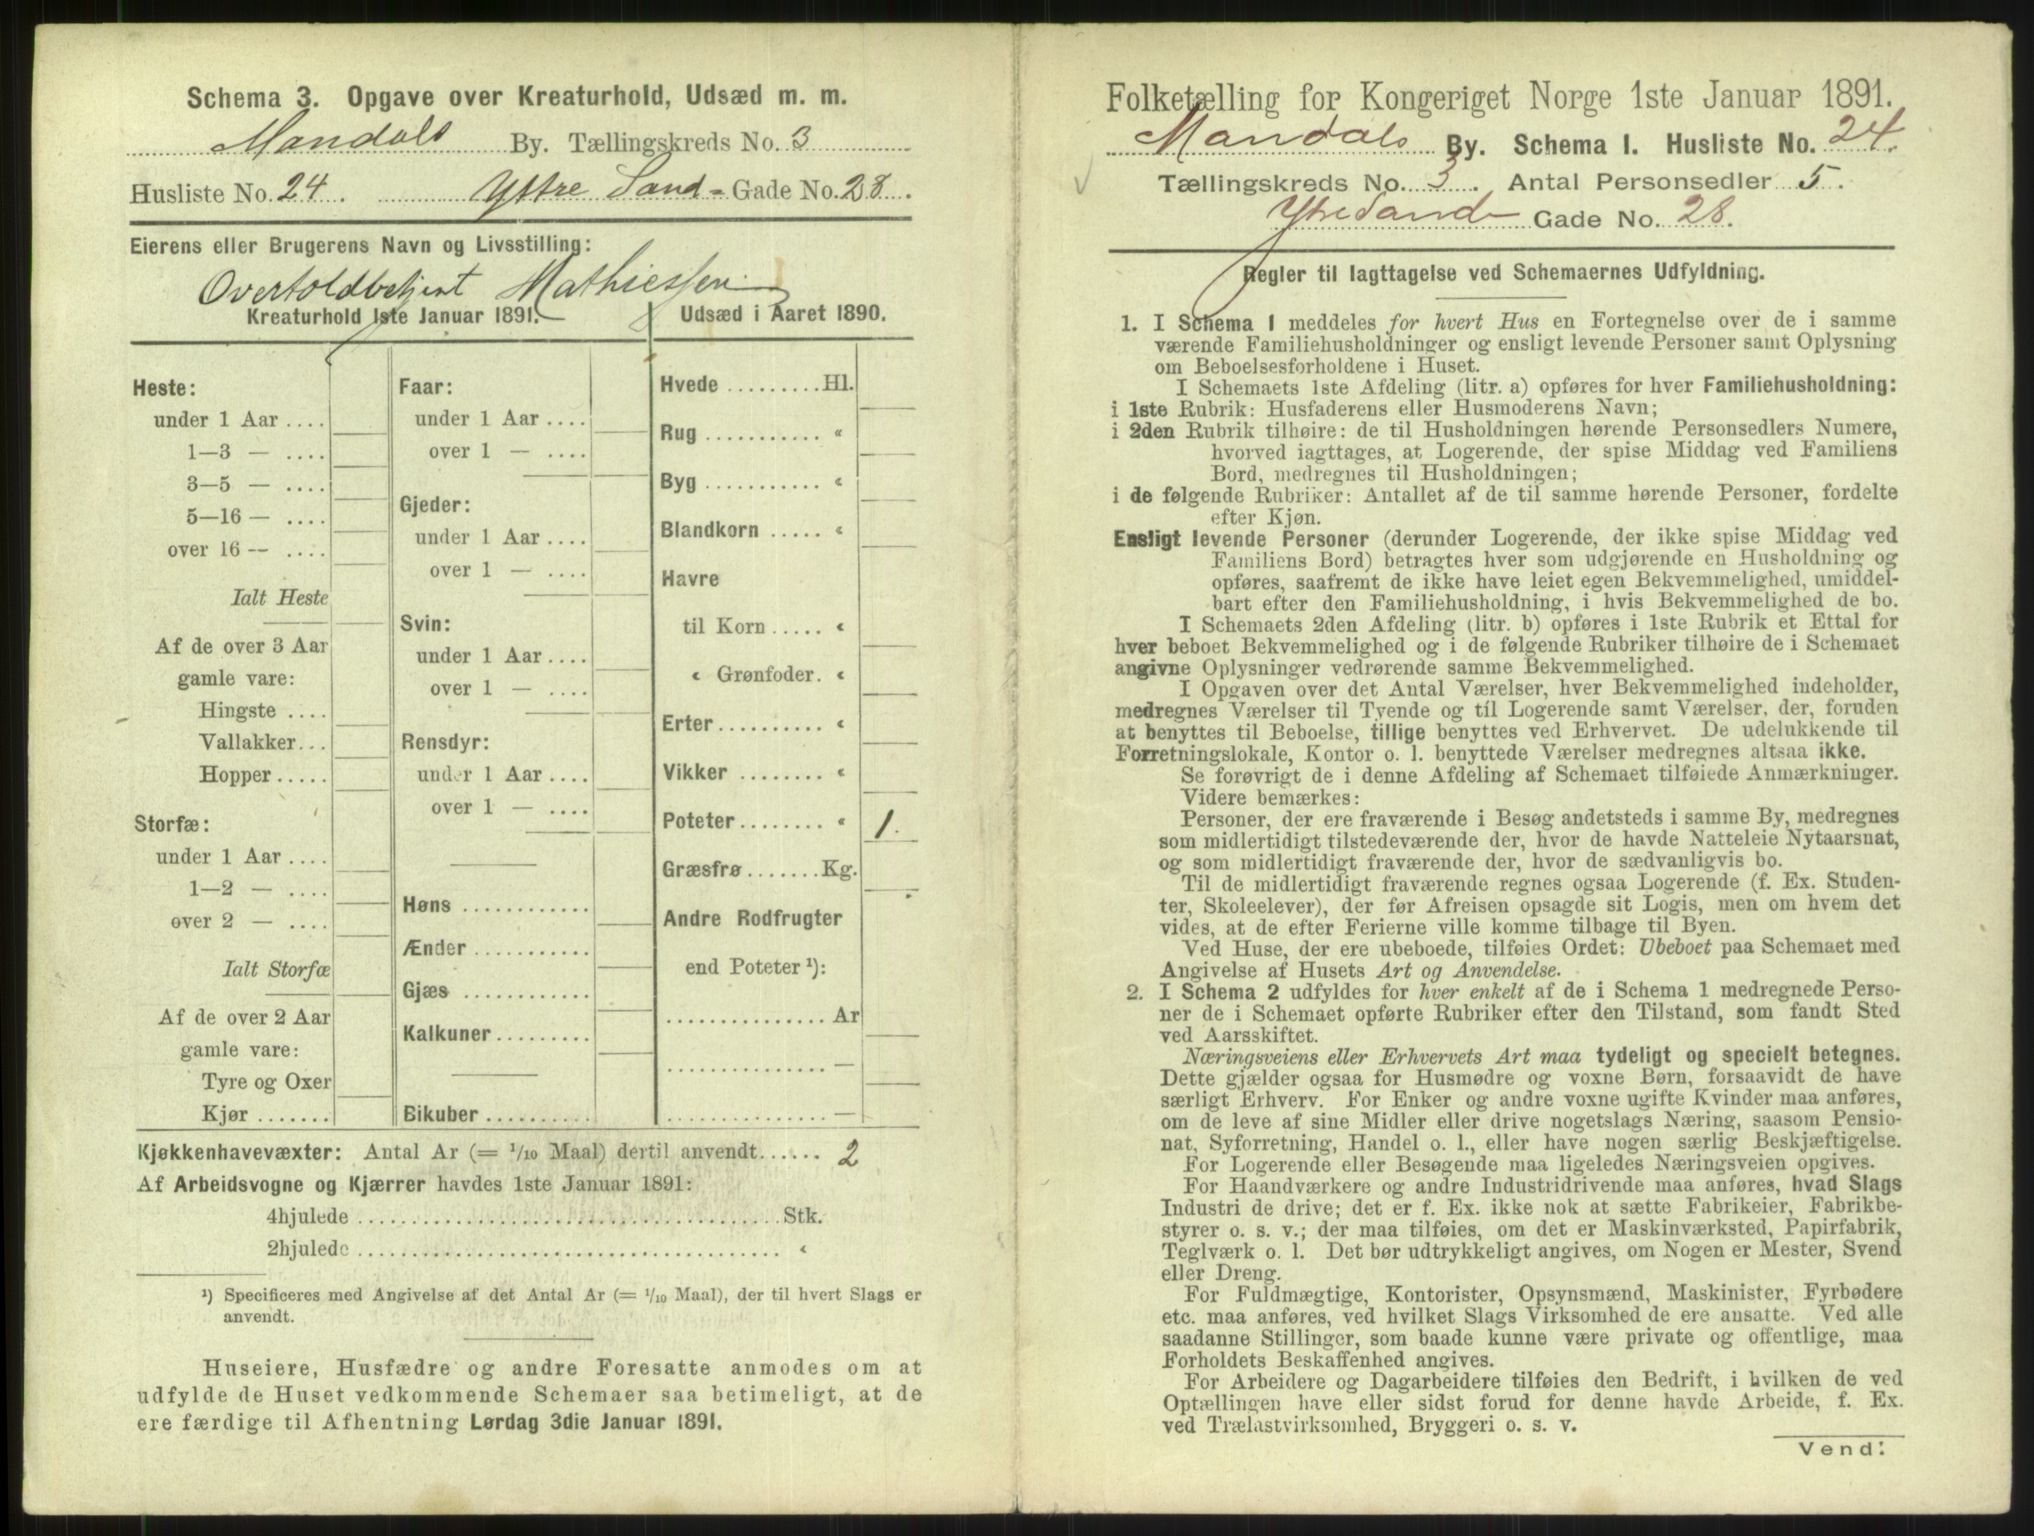 Schema 3. Opgave over Kreaturhold, Udsæd m. m.
Mandals By. Tællingskreds No. 3
Husliste No. 24. Yttre Sand- Gade No. 28.
Eierens eller Brugerens Navn og Livsstilling:
Overtoldbetjent Mathiessen
Kreaturhold 1ste Januar 1891.
Heste:
under 1 Aar ....
1—3 — ....
3—5 — ....
5—16 — ....
over 16 — ....
Ialt Heste
Af de over 3 Aar
gamle vare:
Hingste ....
Vallakker...
Hopper .....
Storfæ:
under 1 Aar ....
1—2 — ....
over 2 — ....
Ialt Storfæ
Af de over 2 Aar
gamle vare:
Tyre og Oxer
Kjør .......
Faar:
under 1 Aar ....
over 1 — ....
Gjeder:
under 1 Aar ....
over 1 — ....
Svin:
under 1 Aar ....
over 1 — ....
Rensdyr:
under 1 Aar ....
over 1 — ....
Høns ............
Ænder ...........
Gjæs ............
Kalkuner.........
Bikuber..........
Udsæd i Aaret 1890.
Hvede .........Hl.
Rug ........... “
Byg ........... “
Blandkorn ..... “
Havre
til Korn ..... “
“ Grønfoder. “
Erter.......... “
Vikker ........ “
Poteter........ “ 1.
Græsfrø .......Kg.
Andre Rodfrugter
end Poteter ¹):
............... Ar
............... —
............... —
Kjøkkenhavevæxter: Antal Ar (= 1/10 Maal) dertil anvendt...... 2
Af Arbeidsvogne og Kjærrer havdes 1ste Januar 1891:
4hjulede ....................................... Stk.
2hjulede ....................................... “
¹) Specificeres med Angivelse af det Antal Ar (= 1/10 Maal), der til hvert Slags er
anvendt.
Huseiere, Husfædre og andre Foresatte anmodes om at
udfylde de Huset vedkommende Schemaer saa betimeligt, at de
ere færdige til Afhentning Lørdag 3die Januar 1891.
Folketælling for Kongeriget Norge 1ste Januar 1891.
Mandals By. Schema I. Husliste No. 24.
Tællingskreds No. 3. Antal Personsedler 5.
Ytre Sand- Gade No. 28.
Regler til Iagttagelse ved Schemaernes Udfyldning.
1. I Schema 1 meddeles for hvert Hus en Fortegnelse over de i samme
værende Familiehusholdninger og ensligt levende Personer samt Oplysning
om Beboelsesforholdene i Huset.
I Schemaets 1ste Afdeling (litr. a) opføres for hver Familiehusholdning:
i 1ste Rubrik: Husfaderens eller Husmoderens Navn;
i 2den Rubrik tilhøire: de til Husholdningen hørende Personsedlers Numere,
hvorved iagttages, at Logerende, der spise Middag ved Familiens
Bord, medregnes til Husholdningen;
i de følgende Rubriker: Antallet af de til samme hørende Personer, fordelte
efter Kjøn.
Ensligt levende Personer (derunder Logerende, der ikke spise Middag ved
Familiens Bord) betragtes hver som udgjørende en Husholdning og
opføres, saafremt de ikke have leiet egen Bekvemmelighed, umiddel-
bart efter den Familiehusholdning, i hvis Bekvemmelighed de bo.
I Schemaets 2den Afdeling (litr. b) opføres i 1ste Rubrik et Ettal for
hver beboet Bekvemmelighed og i de følgende Rubriker tilhøire de i Schemaet
angivne Oplysninger vedrørende samme Bekvemmelighed.
I Opgaven over det Antal Værelser, hver Bekvemmelighed indeholder,
medregnes Værelser til Tyende og til Logerende samt Værelser, der, foruden
at benyttes til Beboelse, tillige benyttes ved Erhvervet. De udelukkende til
Forretningslokale, Kontor o. l. benyttede Værelser medregnes altsaa ikke.
Se forøvrigt de i denne Afdeling af Schemaet tilføiede Anmærkninger.
Videre bemærkes:
Personer, der ere fraværende i Besøg andetsteds i samme By, medregnes
som midlertidigt tilstedeværende der, hvor de havde Natteleie Nytaarsnat,
og som midlertidigt fraværende der, hvor de sædvanligvis bo.
Til de midlertidigt fraværende regnes ogsaa Logerende (f. Ex. Studen-
ter, Skoleelever), der før Afreisen opsagde sit Logis, men om hvem det
vides, at de efter Ferierne ville komme tilbage til Byen.
Ved Huse, der ere ubeboede, tilføies Ordet: Ubeboet paa Schemaet med
Angivelse af Husets Art og Anvendelse.
2. I Schema 2 udfyldes for hver enkelt af de i Schema 1 medregnede Perso-
ner de i Schemaet opførte Rubriker efter den Tilstand, som fandt Sted
ved Aarsskiftet.
Næringsveiens eller Erhvervets Art maa tydeligt og specielt betegnes.
Dette gjælder ogsaa for Husmødre og voxne Børn, forsaavidt de have
særligt Erhverv. For Enker og andre voxne ugifte Kvinder maa anføres,
om de leve af sine Midler eller drive nogetslags Næring, saasom Pensio-
nat, Syforretning, Handel o. l., eller have nogen særlig Beskjæftigelse.
For Logerende eller Besøgende maa ligeledes Næringsveien opgives.
For Haandværkere og andre Industridrivende maa anføres, hvad Slags
Industri de drive; det er f. Ex. ikke nok at sætte Fabrikeier, Fabrikbe-
styrer o. s. v.; der maa tilføies, om det er Maskinværksted, Papirfabrik,
Teglværk o. l. Det bør udtrykkeligt angives, om Nogen er Mester, Svend
eller Dreng.
For Fuldmægtige, Kontorister, Opsynsmænd, Maskinister, Fyrbødere
etc. maa anføres, ved hvilket Slags Virksomhed de ere ansatte. Ved alle
saadanne Stillinger, som baade kunne være private og offentlige, maa
Forholdets Beskaffenhed angives.
For Arbeidere og Dagarbeidere tilføies den Bedrift, i hvilken de ved
Optællingen have eller sidst forud for denne havde Arbeide, f. Ex.
ved Trælastvirksomhed, Bryggeri o. s. v.
Vend: